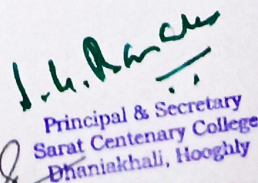 Principal & Secretary
Sarat Centenary College
Dhaniakhali, Hooghly